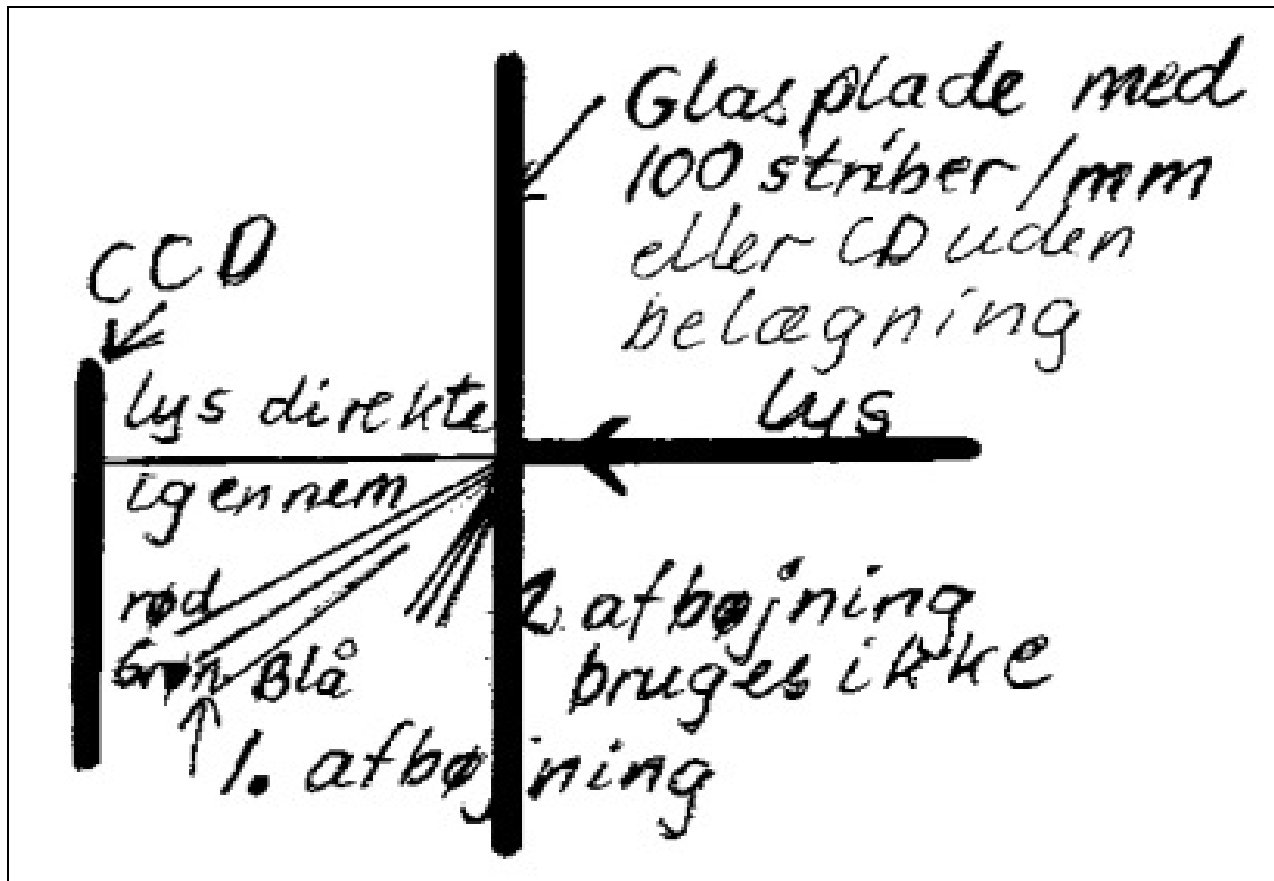 Glasplade med
100 striber/mm
eller CD uden
belægning
CCD
lys
lys direkte
igennem
rød
Grøn Blå
2. afbøjning
bruges ikke
1. afbøjning